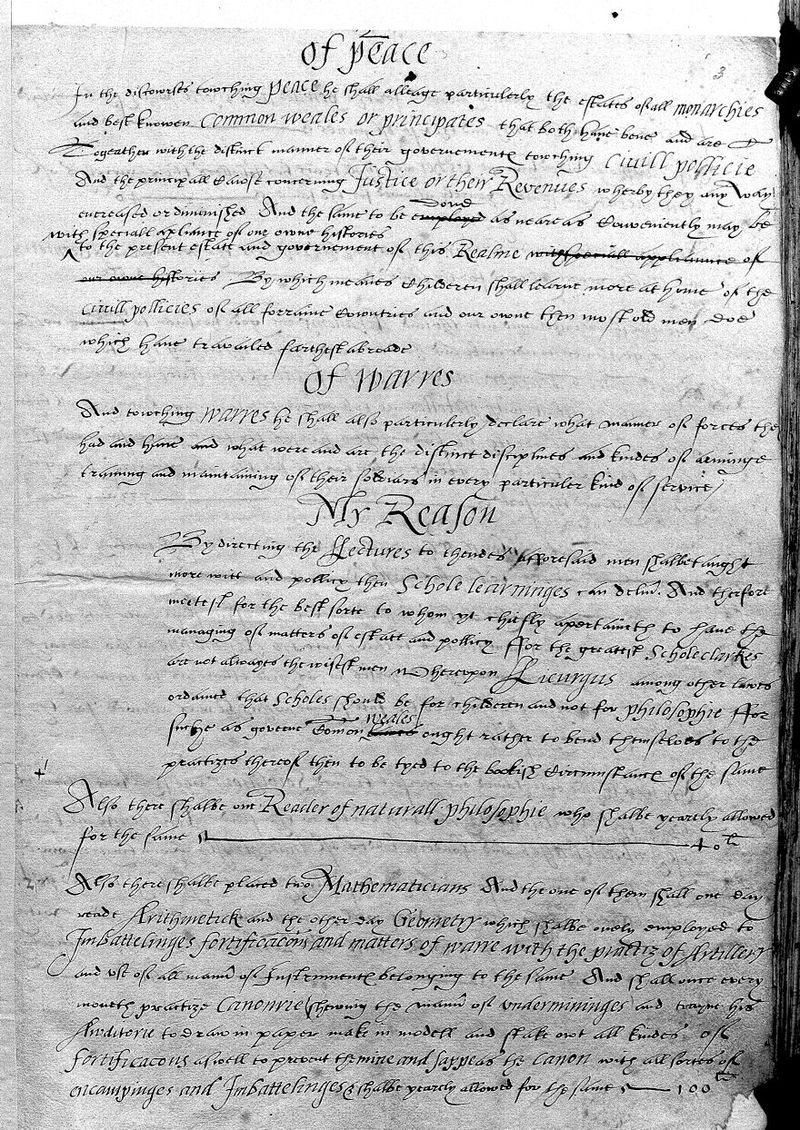 Of peace
3
In the discourses towching peace he shall alleage particularly the estates of all monarchies
and best knowen Common weales or principates that both have bene and are
Togeather with the distinct manner of their governementes towching Civill pollicie
And the principall cause concerning Justice or their Revenues wherby they any way
encreased or diminished And the same to be employed done as neare as conveniently may be
with speciall apliance of our owne histories
to the present estate and governement of this Realme with speciall appliance of
our owne histories By which meanes Children shall learne more at home of the
Civill pollicies of all forraine Countries and our owne then most old men doe
which have travailed farthest abroade
Of warres
And towching warres he shall also particularly declare what manner of forces they
had and have and what were and are the distinct disciplines and kindes of arminge
training and maintaining of their soldiars in every particuler kind of service
My Reason
By directing the Lectures to thendes afforesaid men shalbe taught
more witt and pollicy then Schole learninges can deliver. And therfore
meetest for the best sorte to whom yt chiefly apertaineth to have the
managing of matters of estate and pollicy ffor the greatest Schole clarkes
are not alwayes the wisest men Whereupon Licurgus among other lawes
ordained that Scholes should be for children and not for philosophie ffor
suche as governe Comon weales ought rather to bend themselves to the
practizes thereof then to be tyed to the bookish Circumstances of the same
Also there shalbe one Reader of naturall philosophie who shalbe yearly allowed
for the same 40li
Also there shalbe placed two Mathematicians And the one of them shall one day
reade Arithmetick and the other day Geometry which shalbe onely employed to
Imbattelinges fortificacons and matters of warre with the practiz of Artillery
and use of all maner of Instrumentes belonging to the same And shall once every
moneth practize Canonrie (shewing the maner of undermininges and trayne his
Auditorie to draw in paper make in modell and stake owt all kindes of
fortificacons aswell to prevent the mine and sappe as the Canon with all sortes of
encampinges and Imbattelinges & shalbe yearly allowed for the same 100li